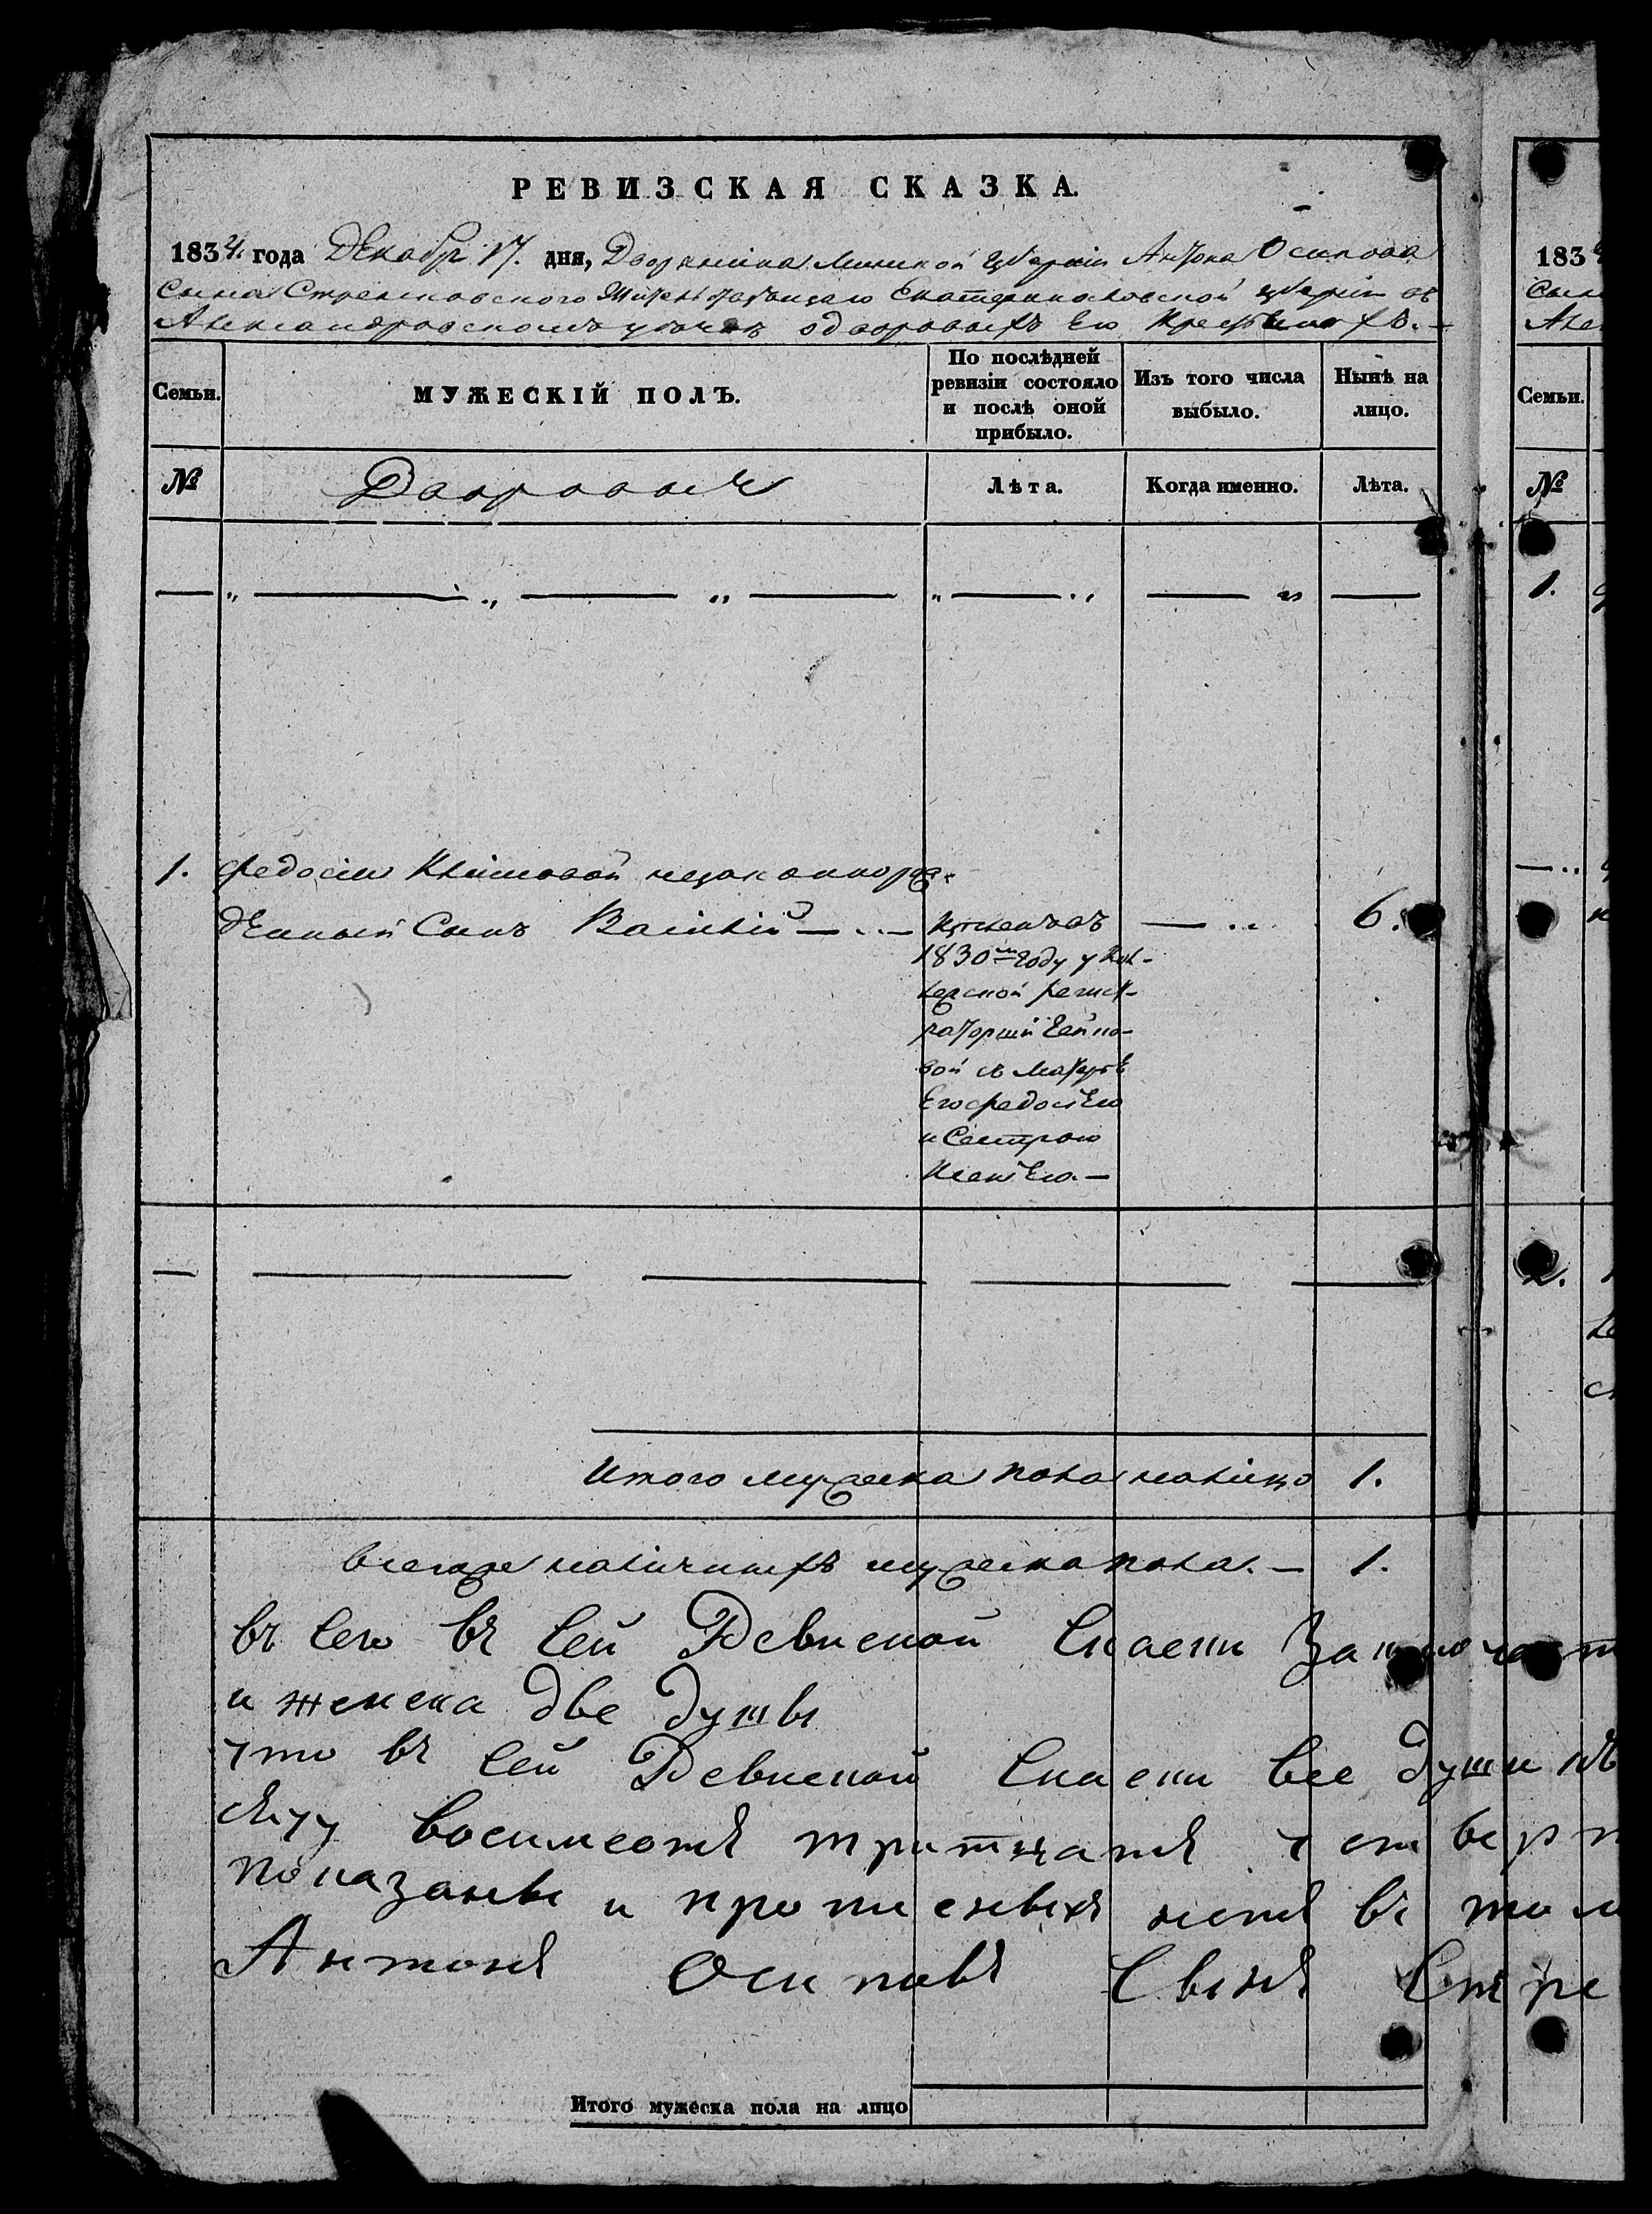 РЕВИЗСКАЯ СКАЗКА.
1834. года Декабр. 17. дня, Дворянина Минской губерніи Антона Осипова
Сына Жительствующаго Екатеринославской губерніи въ
Александровскомъ уездѣ одворовыхъ Его Крестьянахъ.
Семьи.
МУЖЕСКІЙ ПОЛЪ.
По послѣдней ревизіи состояло и послѣ оной прибыло.
Изъ того числа выбыло.
Нынѣ на лицо.
№
Дворовыи
Лѣта.
Когда именно.
Лѣта.
1. Федосіи Климовой незаконнорж-
денный Сынъ Василій
Купленъ въ
1830м Году у Кол-
лежской регист-
раторши
вой съ Матерью
Его Федосіею
и Сестрою
Ксеніею.
6.
Итого мужеска пола налицо 1.
Всегоже наличныхъ мужеска пола. 1.
въ Сей Ревиской Скаски
и женска две души
что въ Сей Ревиской Скаски все души
восимсотъ тритцатъ
показаны и прописныхъ нетъ въ
Антонъ Осиповъ Сынъ Стре
Итого мужеска пола на лицо
183
Семьи.
№
1.
2.